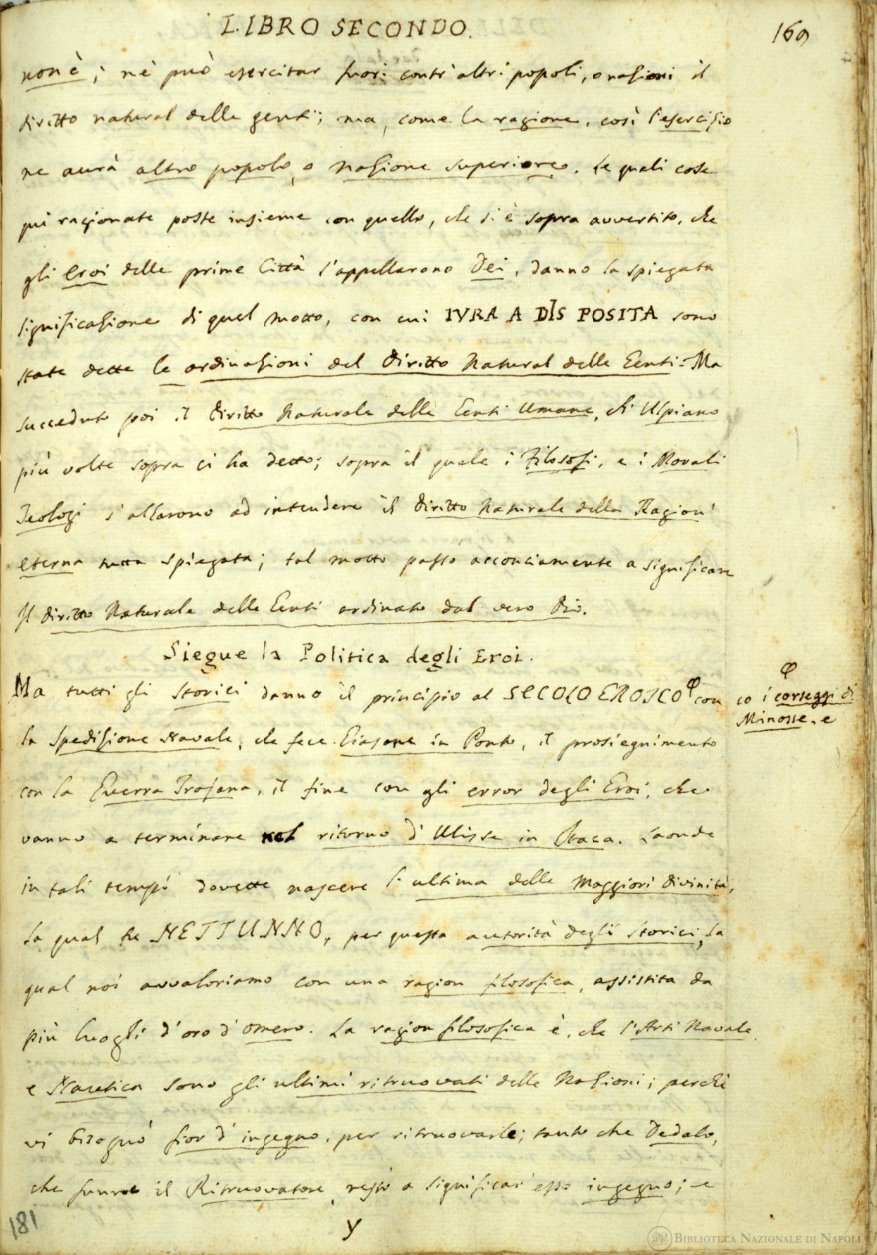 LIBRO SECONDO.
169
non è; nè può esercitar fuori contr'altri popoli, o nazioni il
diritto natural delle genti; ma, come la ragione, così l'esercizio
ne aurà altro popolo, o Nazione superiore. Le quali cose
qui ragionate poste insieme con quello, che si è sopra avvertito, che
gli Eroi delle prime Città s'appellarono Dei, danno la spiegata
significazione di quel motto, con cui IVRA A DIS POSITA sono
state dette le ordinazioni del Diritto Natural delle Genti: Ma
succeduto poi il Diritto Naturale delle Genti Umane, ch'Ulpiano
più volte sopra ci ha detto; sopra il quale i Filosofi, e i Morali
Teologi s'alzarono ad intendere il Diritto Naturale della Ragion'
eterna tutta spiegata; tal motto passò acconciamente a significare
Il Diritto Naturale delle Genti ordinato dal vero Dio.
Siegue la Politica degli Eroi.
Ma tutti gli Storici danno il principio al SECOLO EROICO φ con
φ
co i corseggi di
Minosse, e
la Spedizione Navale, che fece Giasone in Ponto, il prosieguimento
con la Guerra Trojana, il fine con gli error degli Eroi, che
vanno a terminare nel ritorno d'Ulisse in Itaca. Laonde
in tali tempi dovette nascere l'ultima delle Maggiori Divinità,
la qual fu NETTUNNO, per questa autorità degli Storici, la
qual noi avvaloriamo con una ragion filosofica, assistita da
più luoghi d'oro d'Omero. La ragion filosofica è, che l'Arti Navale,
e Nautica sono gli ultimi ritruovati delle Nazioni; perchè
vi bisognò fior d'ingegno, per ritruovarle; tanto che Dedalo,
che funne il Ritruovatore, restò a significar' esso ingegno; e
181
y
BIBLIOTECA NAZIONALE DI NAPOLI